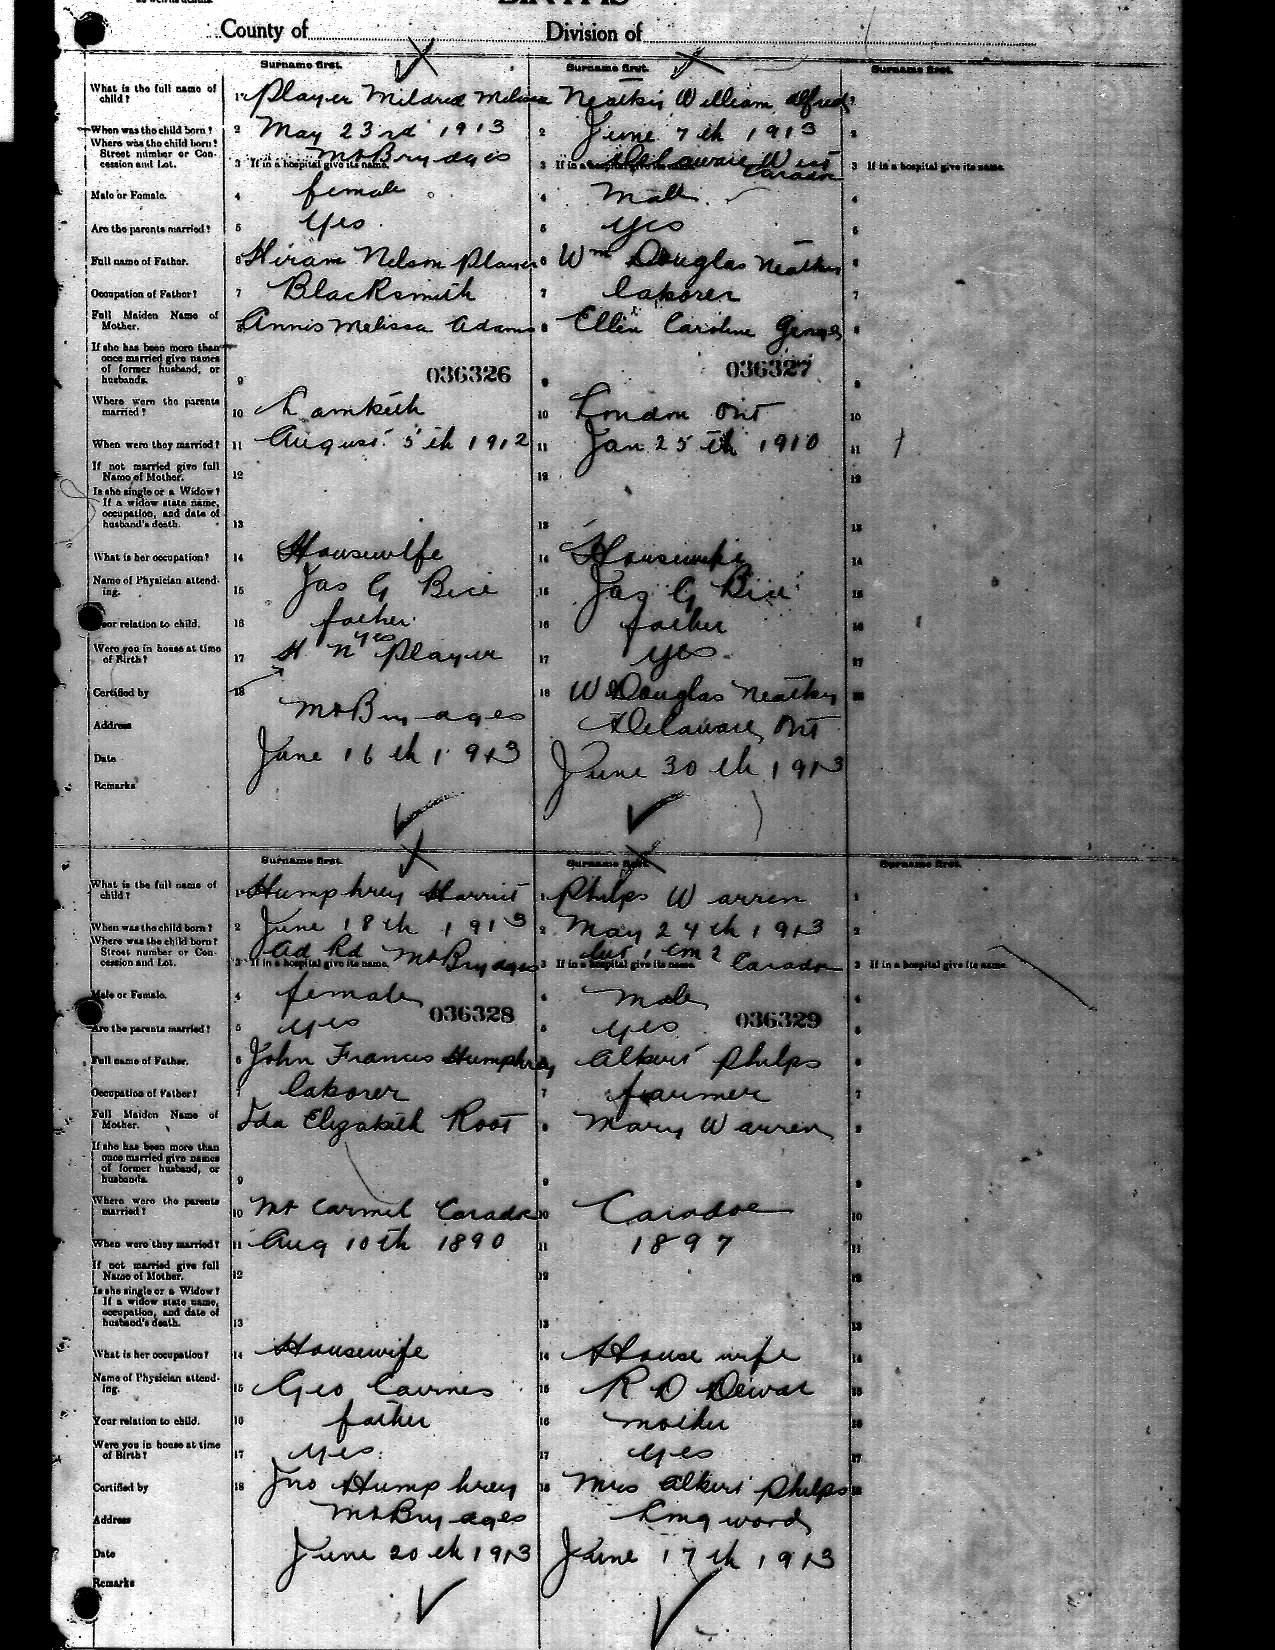 BIRTHS
County of Division of
Surname first. Surname first. Surname first.
What is the full name of child? 1 Player Mildred Melissa Neatkey William Alfred
When was the child born? 2 May 23rd 1913 2 June 7th 1913 2
Where was the child born? Street number or Concession and Lot. 3 If in a hospital give its name. Mt Brydges 3 If in a hospital give its name. Delaware West Caradoc 3 If in a hospital give its name.
Male or Female. 4 female 4 Male 4
Are the parents married? 5 yes 5 yes 5
Full name of Father. 6 Hiram Nelson Player 6 Wm Douglas Neatkey 6
Occupation of Father? 7 Blacksmith 7 laborer 7
Full Maiden Name of Mother. 8 Annis Melissa Adams 8 Ellen Caroline 8
If she has been more than once married give names of former husband, or husbands. 9 036326 9 036327 9
Where were the parents married? 10 Lambeth 10 London Ont 10
When were they married? 11 August 5th 1912 11 Jan 25th 1910 11
If not married give full Name of Mother. 12 12 12
Is she single or a Widow? If a widow state name, occupation, and date of husband's death. 13 13 13
What is her occupation? 14 Housewife 14 Housewife 14
Name of Physician attending. 15 Jas G Bice 15 Jas G Bice 15
Your relation to child. 16 father 16 father 16
Were you in house at time of Birth? 17 yes 17 yes 17
Certified by 18 H N Player 18 W Douglas Neatkey 18
Address Mt Brydges Delaware Ont
Date June 16th 1913 June 30th 1913
Remarks
Surname first. Surname first. Surname first.
What is the full name of child? 1 Humphrey Harriet 1 Phelps Warren 1
When was the child born? 2 June 18th 1913 2 May 24th 1913 2
Where was the child born? Street number or Concession and Lot. 3 If in a hospital give its name. Ad Rd Mt Brydges 3 If in a hospital give its name. lot 1 con 2 Caradoc 3 If in a hospital give its name.
Male or Female. 4 female 4 male 4
036328 036329
Are the parents married? 5 yes 5 yes 5
Full name of Father. 6 John Francis Humphrey 6 Albert Phelps 6
Occupation of Father? 7 laborer 7 farmer 7
Full Maiden Name of Mother. Ida Elizabeth Root 8 Mary Warren 8
If she has been more than once married give names of former husband, or husbands. 9 9 9
Where were the parents married? 10 Mt Carmel Caradoc 10 Caradoc 10
When were they married? 11 Aug 10th 1890 11 1897 11
If not married give full Name of Mother. 12 12 12
Is she single or a Widow? If a widow state name, occupation, and date of husband's death. 13 13 13
What is her occupation? 14 Housewife 14 House wife 14
Name of Physician attending. 15 Geo Cairnes 15 R D Dewar 15
Your relation to child. 16 father 16 mother 16
Were you in house at time of Birth? 17 yes 17 yes 17
Certified by 18 Jno Humphrey 18 Mrs Albert Phelps 18
Address Mt Brydges Longwood
Date June 20th 1913 June 17th 1913
Remarks